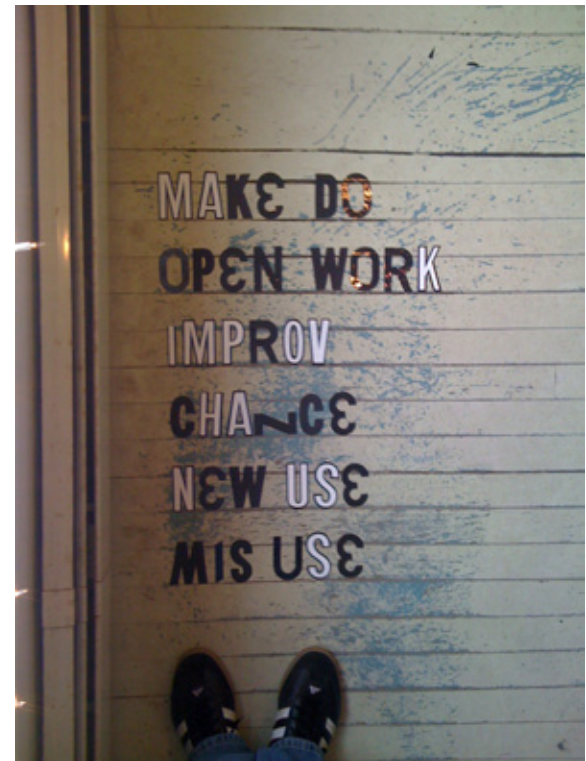 MAKE DO
OPEN WORK
IMPROV
CHANCE
NEW USE
MIS USE